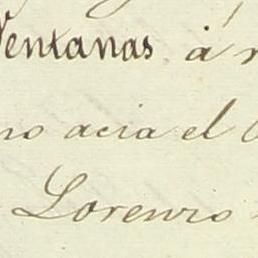 Ventanas á
no acia el
Lorenzo